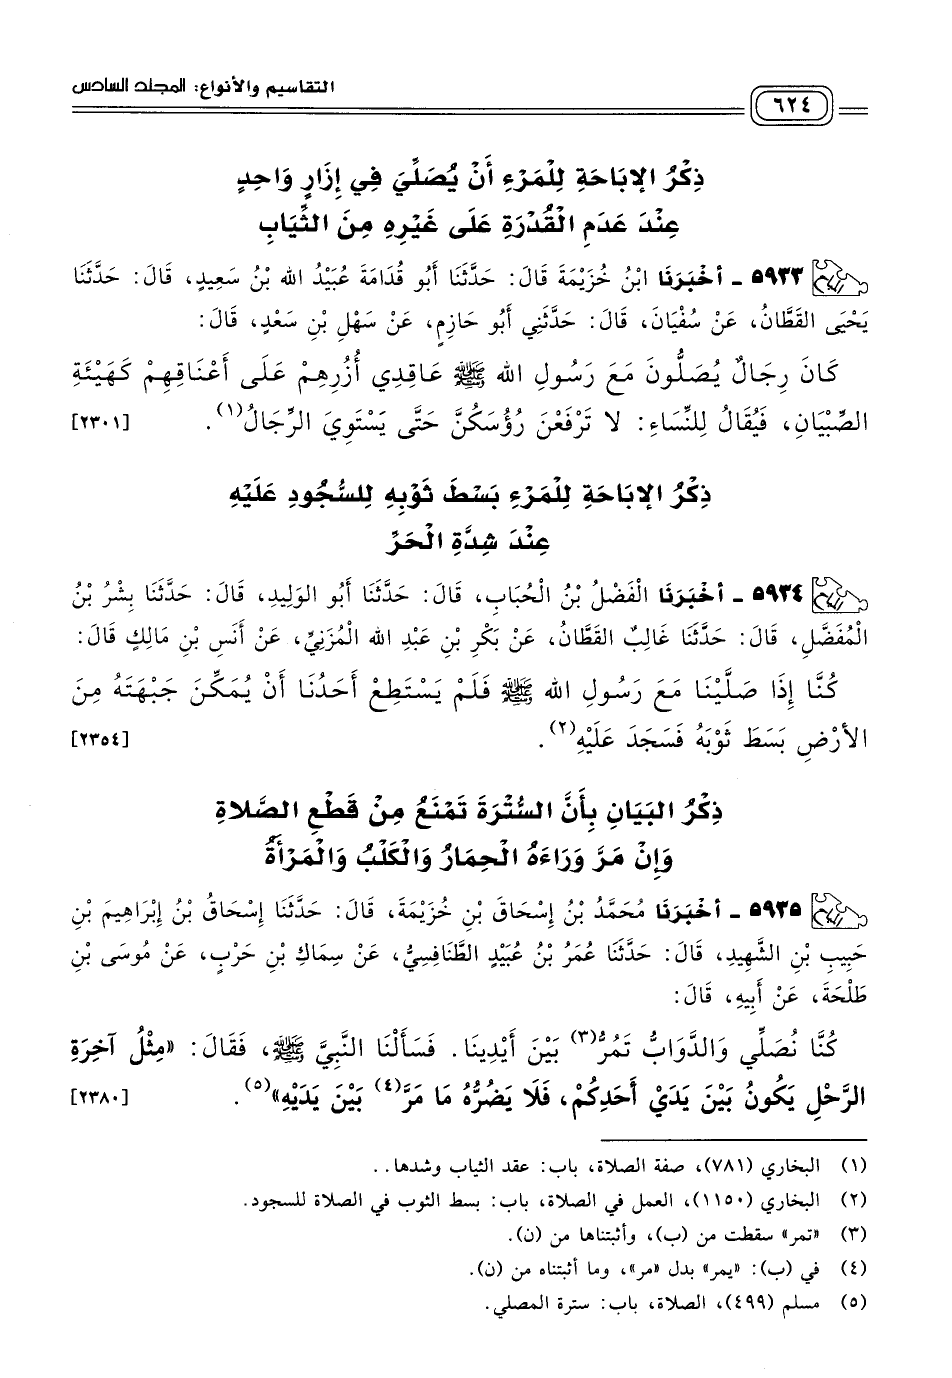 التقاسيم والأنواع: المجلد السادس
٦٢٤
ذِكْرُ الإِبَاحَةِ لِلْمَرْءِ أَنْ يُصَلِّيَ فِي إِزَارٍ وَاحِدٍ
عِنْدَ عَدَمِ الْقُدْرَةِ عَلَى غَيْرِهِ مِنَ الثِّيَابِ
٥٩٣٣ - أَخْبَرَنَا ابْنُ خُزَيْمَةَ قَالَ: حَدَّثَنَا أَبُو قُدَامَةَ عُبَيْدُ الله بْنُ سَعِيدٍ، قَالَ: حَدَّثَنَا
يَحْيَى القَطَّانُ، عَنْ سُفْيَانَ، قَالَ: حَدَّثَنِي أَبُو حَازِمٍ، عَنْ سَهْلِ بْنِ سَعْدٍ، قَالَ:
كَانَ رِجَالٌ يُصَلُّونَ مَعَ رَسُولِ الله ﷺ عَاقِدِي أُزُرِهِمْ عَلَى أَعْنَاقِهِمْ كَهَيْئَةِ
الصِّبْيَانِ، فَيُقَالُ لِلنِّسَاءِ: لا تَرْفَعْنَ رُؤُسَكُنَّ حَتَّى يَسْتَوِيَ الرِّجَالُ(١). [٢٣٠١]
ذِكْرُ الإِبَاحَةِ لِلْمَرْءِ بَسْطَ ثَوْبِهِ لِلسُّجُودِ عَلَيْهِ
عِنْدَ شِدَّةِ الْحَرِّ
٥٩٣٤ - أَخْبَرَنَا الْفَضْلُ بْنُ الْحُبَابِ، قَالَ: حَدَّثَنَا أَبُو الوَلِيدِ، قَالَ: حَدَّثَنَا بِشْرُ بْنُ
الْمُفَضَّلِ، قَالَ: حَدَّثَنَا غَالِبٌ القَطَّانُ، عَنْ بَكْرِ بْنِ عَبْدِ الله الْمُزَنِيِّ، عَنْ أَنَسِ بْنِ مَالِكٍ قَالَ:
كُنَّا إِذَا صَلَّيْنَا مَعَ رَسُولِ الله ﷺ فَلَمْ يَسْتَطِعْ أَحَدُنَا أَنْ يُمَكِّنَ جَبْهَتَهُ مِنَ
الأَرْضِ بَسَطَ ثَوْبَهُ فَسَجَدَ عَلَيْهِ(٢). [٢٣٥٤]
ذِكْرُ البَيَانِ بِأَنَّ السُّتْرَةَ تَمْنَعُ مِنْ قَطْعِ الصَّلاةِ
وَإِنْ مَرَّ وَرَاءَهُ الْحِمَارُ وَالْكَلْبُ وَالْمَرْأَةُ
٥٩٣٥ - أَخْبَرَنَا مُحَمَّدُ بْنُ إِسْحَاقَ بْنِ خُزَيْمَةَ، قَالَ: حَدَّثَنَا إِسْحَاقُ بْنُ إِبْرَاهِيمَ بْنِ
حَبِيبِ بْنِ الشَّهِيدِ، قَالَ: حَدَّثَنَا عُمَرُ بْنُ عُبَيْدٍ الطَّنَافِسِيُّ، عَنْ سِمَاكِ بْنِ حَرْبٍ، عَنْ مُوسَى بْنِ
طَلْحَةَ، عَنْ أَبِيهِ، قَالَ:
كُنَّا نُصَلِّي وَالدَّوَابُّ تَمُرُّ(٣) بَيْنَ أَيْدِينَا. فَسَأَلْنَا النَّبِيَّ ﷺ، فَقَالَ: «مِثْلُ آخِرَةِ
الرَّحْلِ يَكُونُ بَيْنَ يَدَيْ أَحَدِكُمْ، فَلَا يَضُرُّهُ مَا مَرَّ(٤) بَيْنَ يَدَيْهِ»(٥). [٢٣٨٠]
(١) البخاري (٧٨١)، صفة الصلاة، باب: عقد الثياب وشدها..
(٢) البخاري (١١٥٠)، العمل في الصلاة، باب: بسط الثوب في الصلاة للسجود.
(٣) «تمر» سقطت من (ب)، وأثبتناها من (ن).
(٤) في (ب): «يمر» بدل «مر»، وما أثبتناه من (ن).
(٥) مسلم (٤٩٩)، الصلاة، باب: سترة المصلي.